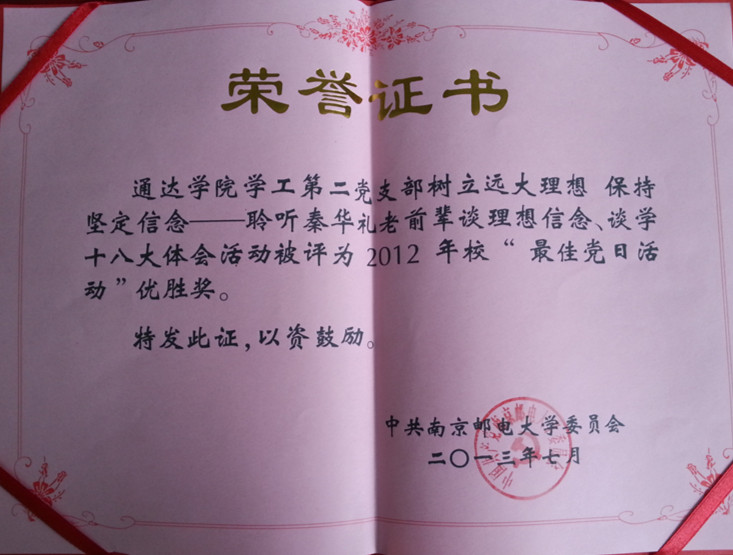 荣誉证书
通达学院学工第二党支部树立远大理想 保持
坚定信念——聆听秦华礼老前辈谈理想信念、谈学
十八大体会活动被评为 2012 年校“ 最佳党日活
动”优胜奖。
特发此证，以资鼓励。
中共南京邮电大学委员会
二〇一三年七月